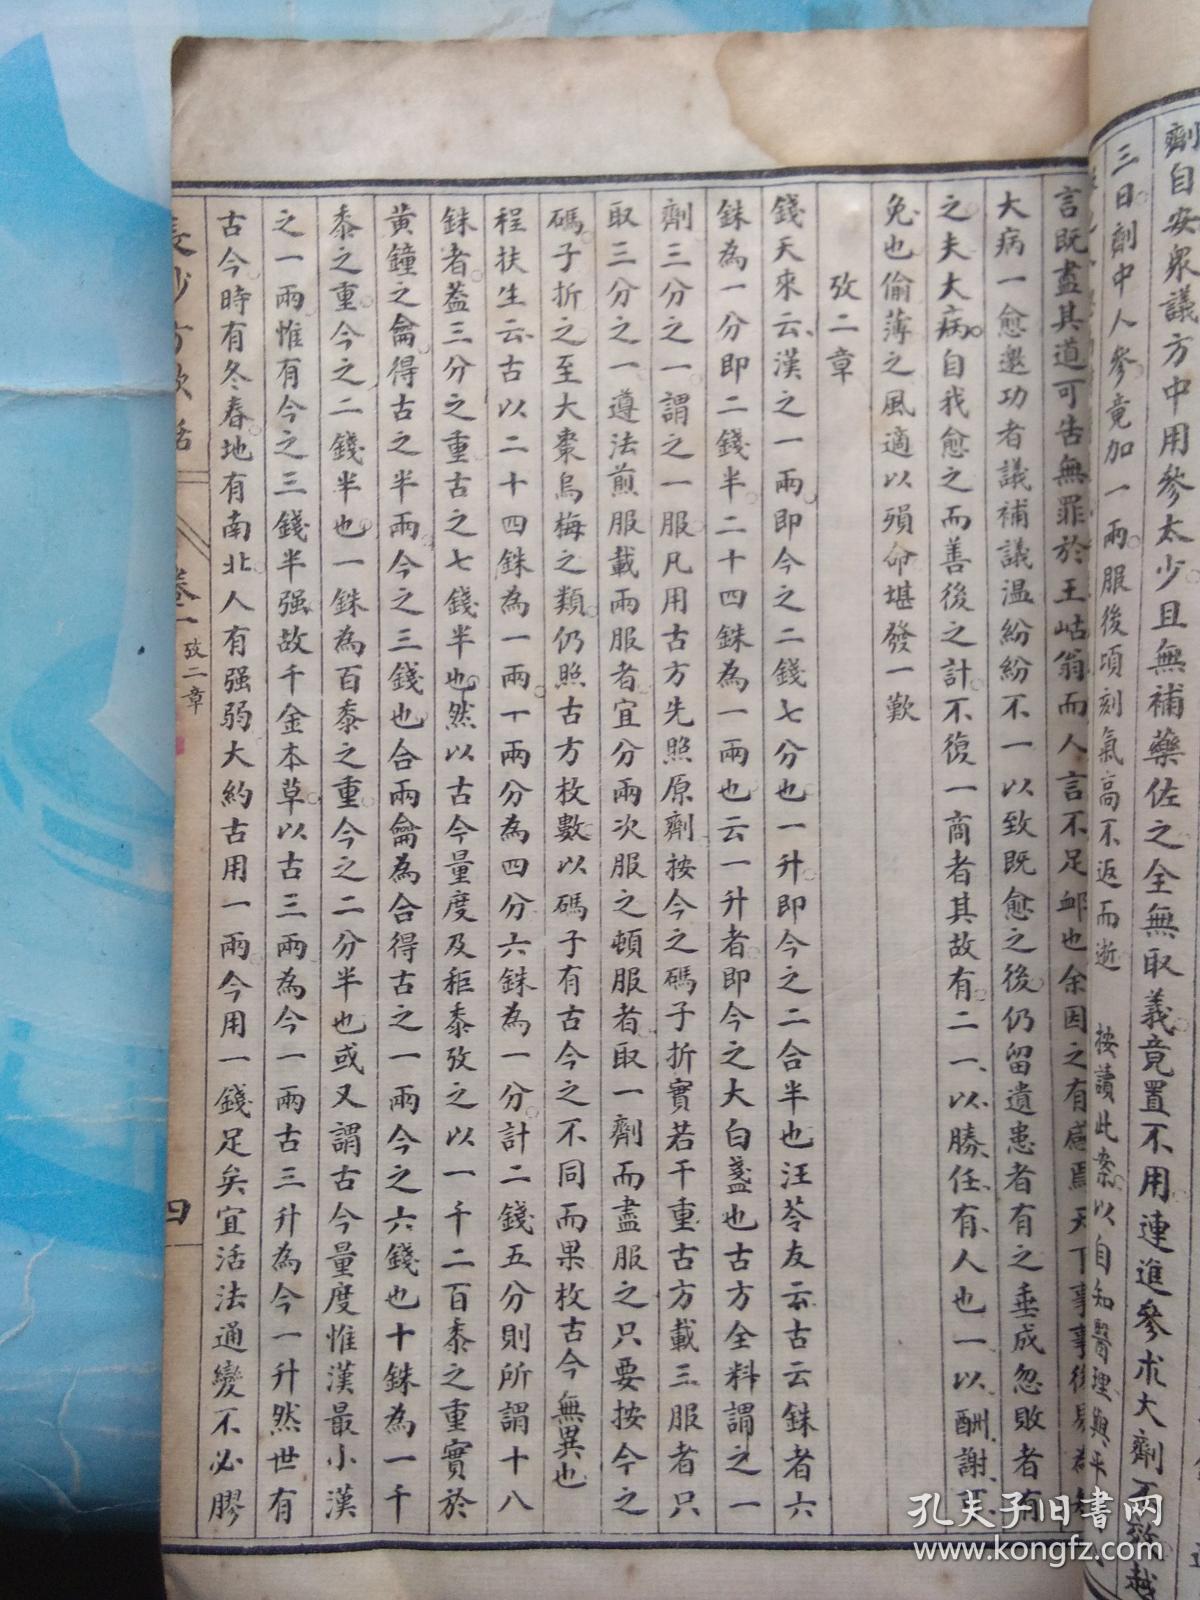 劑自安眾議方中用參太少且無補藥佐之全無取義竟置不用連進參朮大劑不效越
三日劑中人參竟加一兩服後頃刻氣高不返而逝 按讀此案以自知醫理與平
言既盡其道可告無罪於王岵翁而人言不足卹也余因之有感焉天下事事後易
大病一愈邀功者議補議溫紛紛不一以致既愈之後仍留遺患者有之垂成忽敗者有
之夫大病自我愈之而善後之計不復一商者其故有二一以勝任有人也一以酬謝可
免也偷薄之風適以殞命堪發一歎
攷二章
錢天來云漢之一兩即今之二錢七分也一升即今之二合半也汪苓友云古云銖者六
銖為一分即二錢半二十四銖為一兩也云一升者即今之大白盞也古方全料謂之一
劑三分之一謂之一服凡用古方先照原劑按今之碼子折實若干重古方載三服者只
取三分之一遵法煎服載兩服者宜分兩次服之頓服者取一劑而盡服之只要按今之
碼子折之至大棗烏梅之類仍照古方枚數以碼子有古今之不同而果枚古今無異也
程扶生云古以二十四銖為一兩一兩分為四分六銖為一分計二錢五分則所謂十八
銖者蓋三分之重古之七錢半也然以古今量度及秬黍攷之以一千二百黍之重實於
黃鐘之龠得古之半兩今之三錢也合兩龠為合得古之一兩今之六錢也十銖為一千
黍之重今之二錢半也一銖為百黍之重今之二分半也或又謂古今量度惟漢最小漢
之一兩惟有今之三錢半强故千金本草以古三兩為今一兩古三升為今一升然世有
古今時有冬春地有南北人有强弱大約古用一兩今用一錢足矣宜活法通變不必膠
長沙方歌括
卷一
攷二章
四
孔夫子旧书网
www.kongfz.com